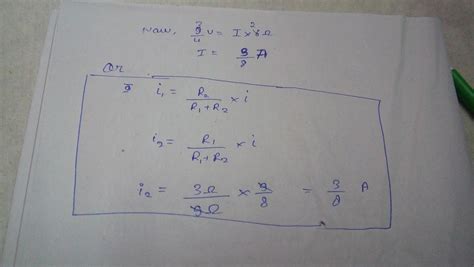 Now, 3/4 V = I × 2Ω
I = 3/8 A
Or
i₁ = R₂/(R₁+R₂) × i
i₂ = R₁/(R₁+R₂) × i
i₂ = 3Ω/9Ω × 9/8 = 3/8 A